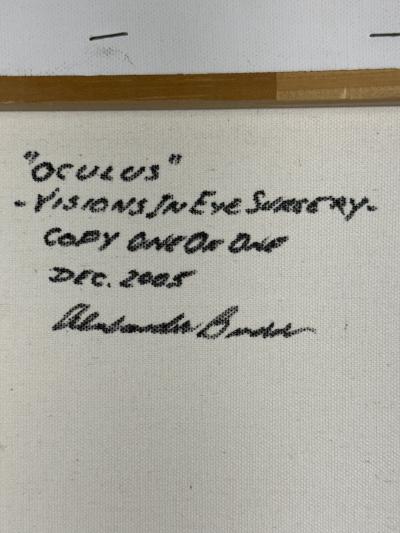 "OCULUS"
-VISIONS IN EYE SURGERY-
COPY ONE OF ONE
DEC. 2005
Alexander